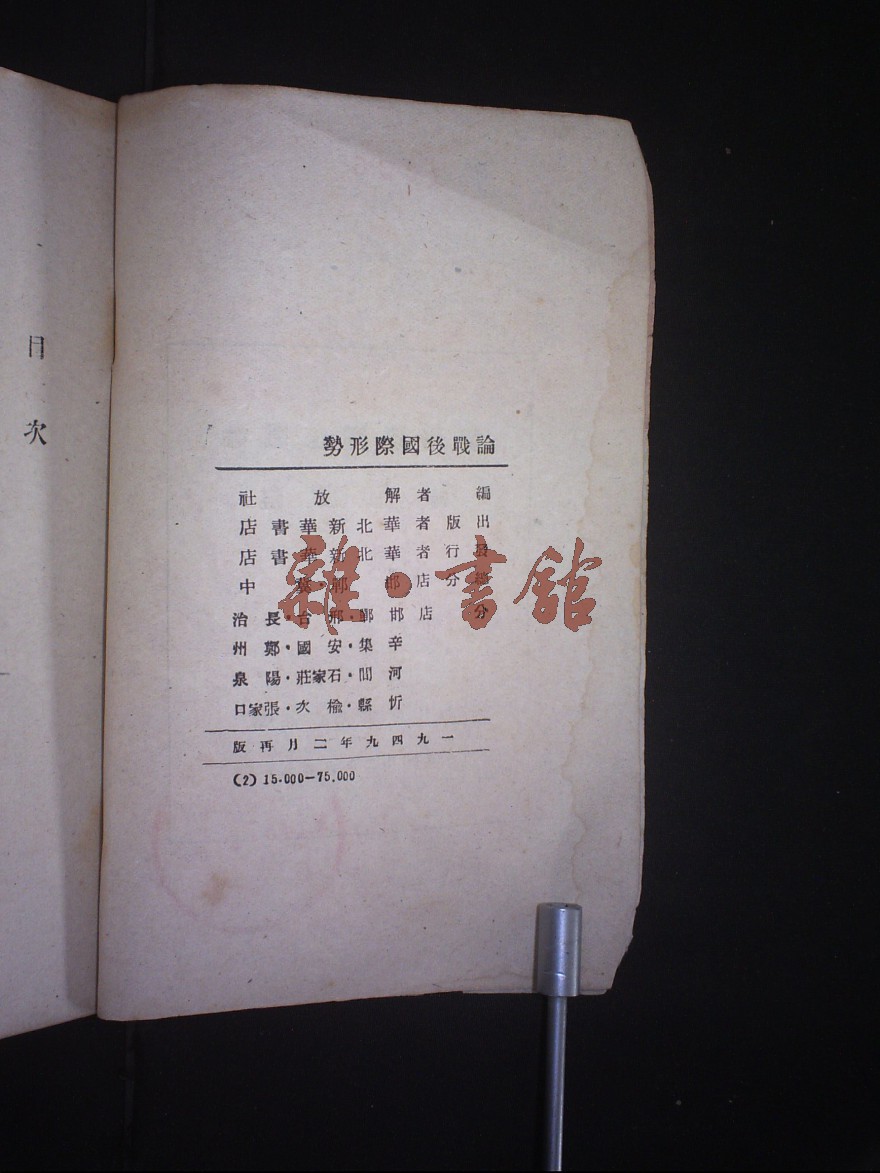 目次
論戰後國際形勢
編者 解放社
出版者 華北新華書店
發行者 華北新華書店
總分店 邯鄲· 中
分店 邯鄲·邢台·長治
辛集·安國·鄭州
河間·石家莊·陽泉
忻縣·榆次·張家口
一九四九年二月再版
(2) 15.000—75.000
雜·書館